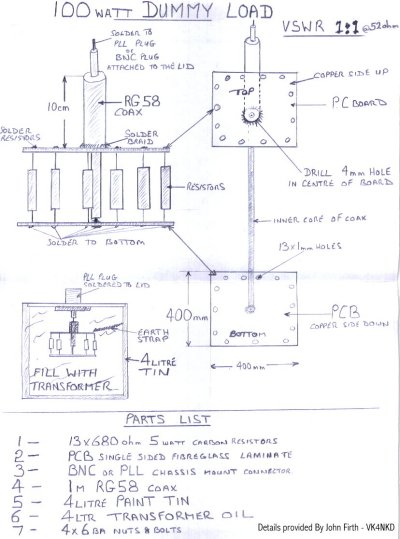 100 WATT DUMMY LOAD
VSWR 1:1 @52ohm
SOLDER TO
PLL PLUG
OR
BNC PLUG
ATTACHED TO THE LID
10cm
RG58
COAX
SOLDER
BRAID
SOLDER
RESISTORS
RESISTORS
SOLDER TO BOTTOM
COPPER SIDE UP
TOP
PC BOARD
DRILL 4mm HOLE
IN CENTRE OF BOARD
INNER CORE OF COAX
13x1mm HOLES
400
mm
BOTTOM
PCB
COPPER SIDE DOWN
400mm
PLL PLUG
SOLDERED TO LID
EARTH
STRAP
4 LITRE
TIN
FILL WITH
TRANSFORMER
PARTS LIST
1 — 13x680 ohm 5 WATT CARBON RESISTORS
2 — PCB SINGLE SIDED FIBREGLASS LAMINATE
3 — BNC OR PLL CHASSIS MOUNT CONNECTOR
4 — 1M RG58 COAX
5 — 4 LITRE PAINT TIN
6 — 4LTR TRANSFORMER OIL
7 — 4 x 6BA NUTS & BOLTS
Details provided By John Firth - VK4NKD